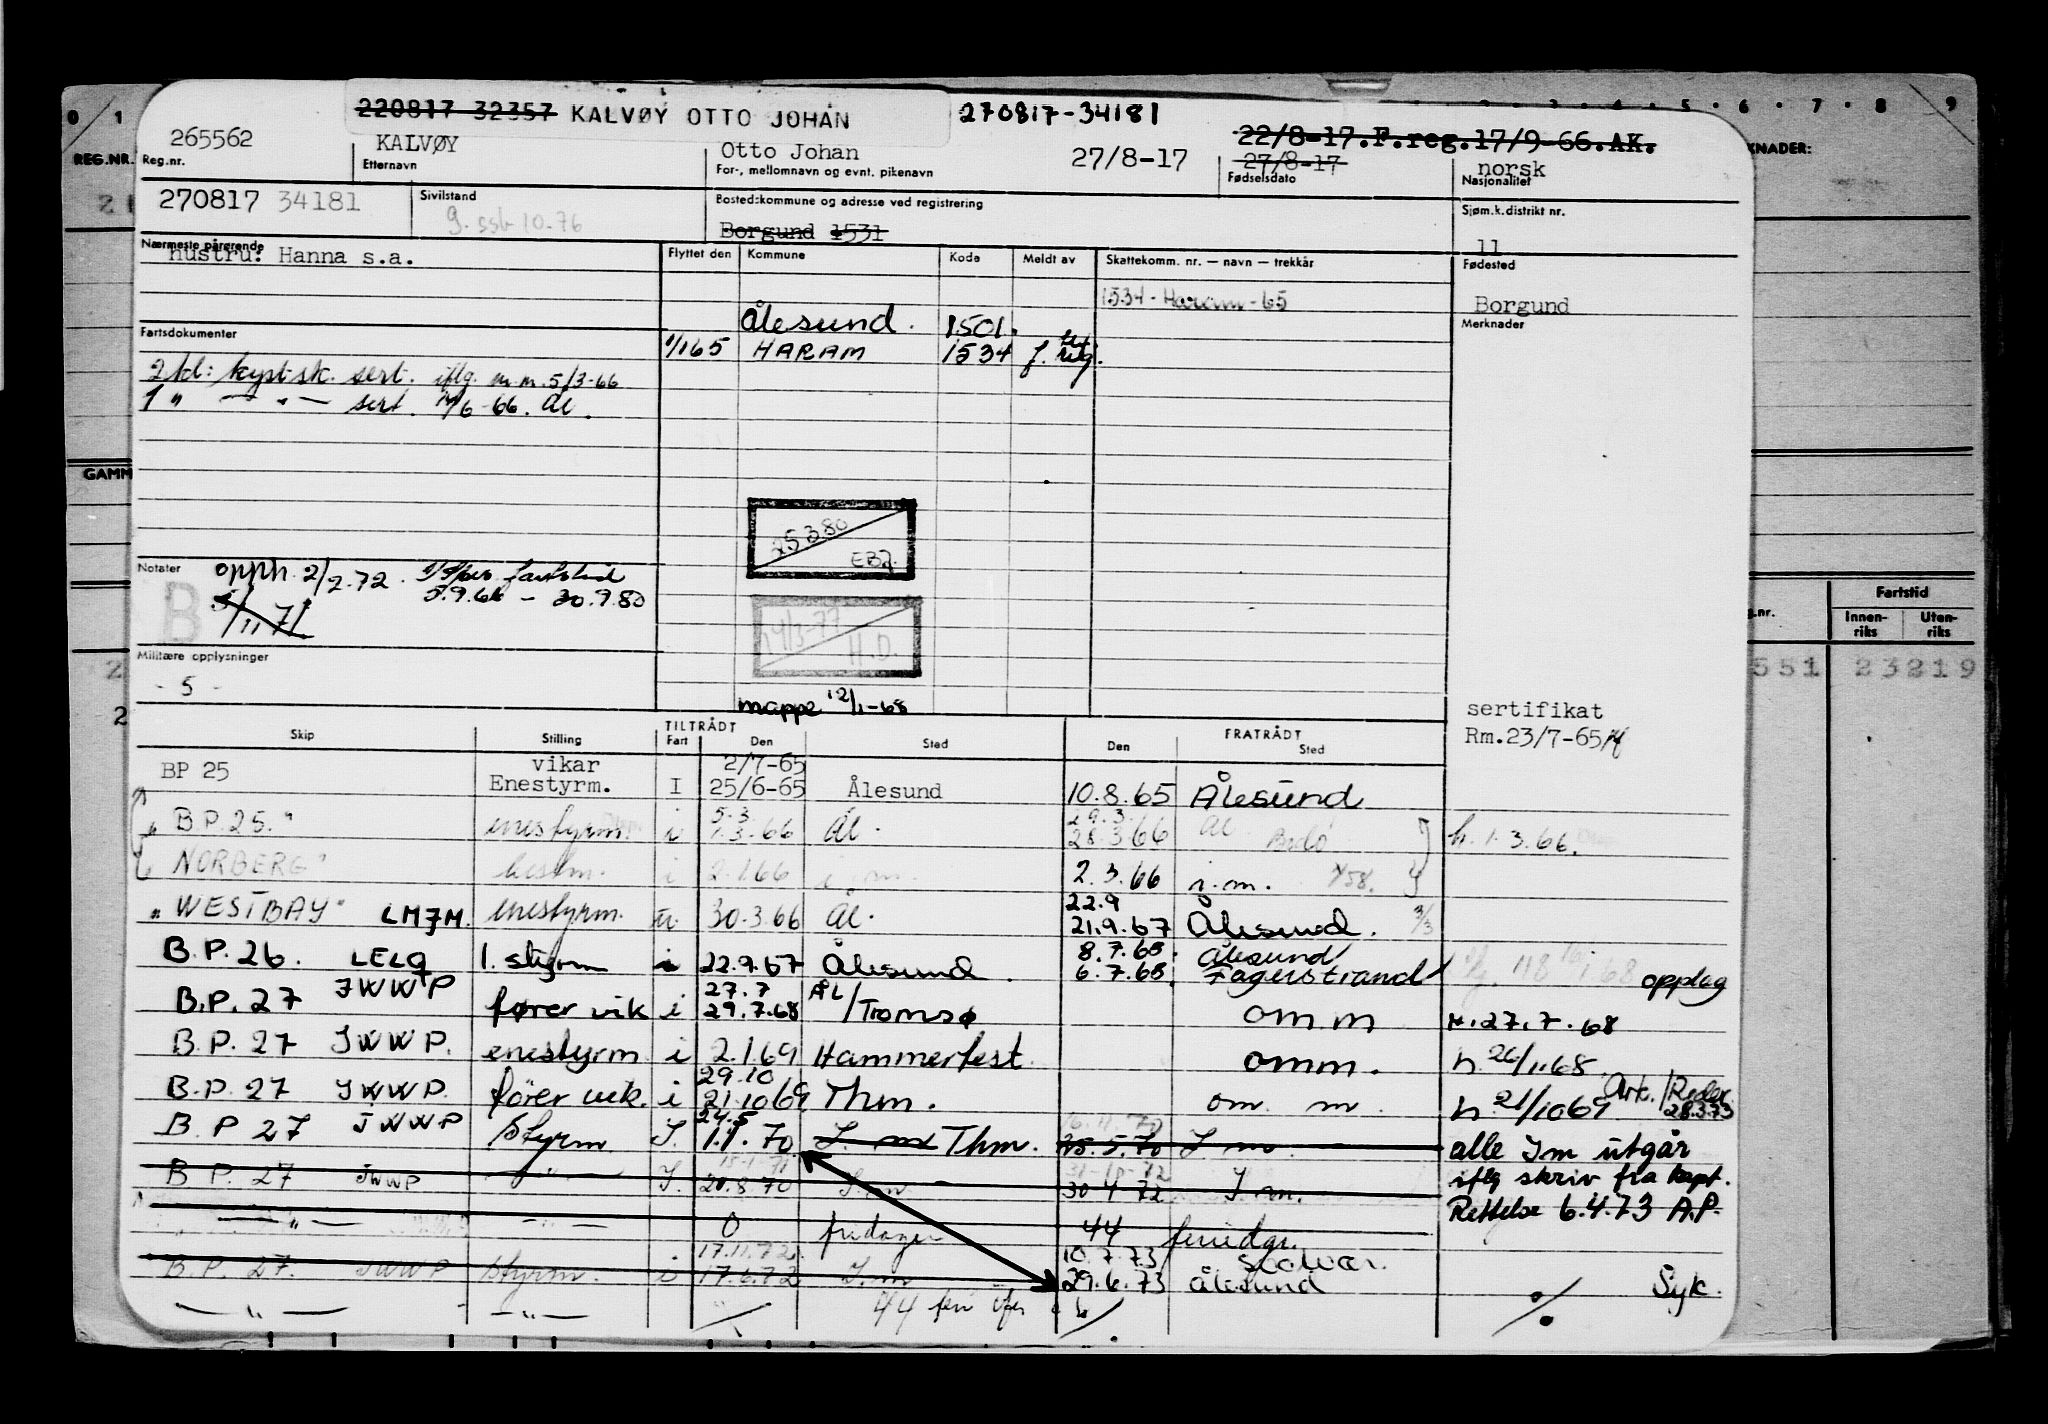 220817 32357 KALVØY OTTO JOHAN 270817-34181
22/8-17.F.reg.17/9-66.AK.
265562 KALVØY Otto Johan 27/8-17 27/8-17 norsk
Reg.nr. Etternavn For-, mellomnavn og evnt. pikenavn Fødselsdato Nasjonalitet
270817 34181 Sivilstand Bostedskommune og adresse ved registrering Sjøm.k.distrikt nr.
g. ssb 10.76 Borgund 1531 11
Nærmeste pårørende Flyttet den Kommune Kode Meldt av Skattekomm. nr. — navn — trekkår Fødested
hustru: Hanna s.a.
1534 - Haram - 65 Borgund
Ålesund. 1501. Merknader
Fartsdokumenter 1/1 65 HARAM 1534 f. reg.
2 kl: kystsk. sert. iflg. m.m. 5/3-66
1 " — " — sert. /6-66. Ål.
25 3 80
EBJ.
Notater opph. 2/2.72. fartstid
B 5/11 71 5.9.66 - 30.9.80
14/3-77
H.D.
Militære opplysninger
- 5 -
mappe 12/1-68
sertifikat
Rm.23/7-65
Skip Stilling TILTRÅDT Fart Den Sted Den FRATRÅDT Sted
vikar 2/7-65
BP 25 Enestyrm. I 25/6-65 Ålesund 10.8.65 Ålesund
5.3 29.3
" B.P. 25. " enestyrm. i 1.3.66 Ål. 28.3.66 Ål Bodø h. 1.3.66.
NORBERG" bestm. i 2.1.66 i.m. 2.3.66 i.m.
22.9
"WESTBAY" LMJM. enestyrm. u. 30.3.66 Ål. 21.9.67 Ålesund. 3/3
8.7.68. Ålesund
B.P. 26. LELQ 1. styrm i 22.9.67 Ålesund 6.7.68. Fagerstrand opplag
27.7 ÅL
B.P. 27 JWWP fører vik i 29.7.68 /Tromsø omm h. 27.7.68
B.P. 27 JWWP. enestyrm i 2.1.69 Hammerfest omm. h 26/11.68.
29.10
B.P. 27 JWWP. fører vik. i 21.10 69 Thm. om m h 21/10 69 Ark./Reder. 28.3.73
24.5 16.11.70
B P 27 JWWP Styrm J. 1.1.70 J. m Thm. 25.5.70 J. m. alle Jm utgår
B P. 27 JWWP — " — J. 20.8.70 J. m 30 4 72 J m. iflg skriv fra kapt.
Rettelse 6.4.73 A.P.
— " — — " — 0 fridager 44 feriedgr.
17.11.72 10.7.73 Svolvær.
B.P. 27. JWWP Styrm. i 17.6.72 J. m 29.6.73 Ålesund Syk.
— " — — " — 44 feri
REG.NR.
GAMM
KNADER:
Fartstid
Innen-riks Uten-riks
551 23219